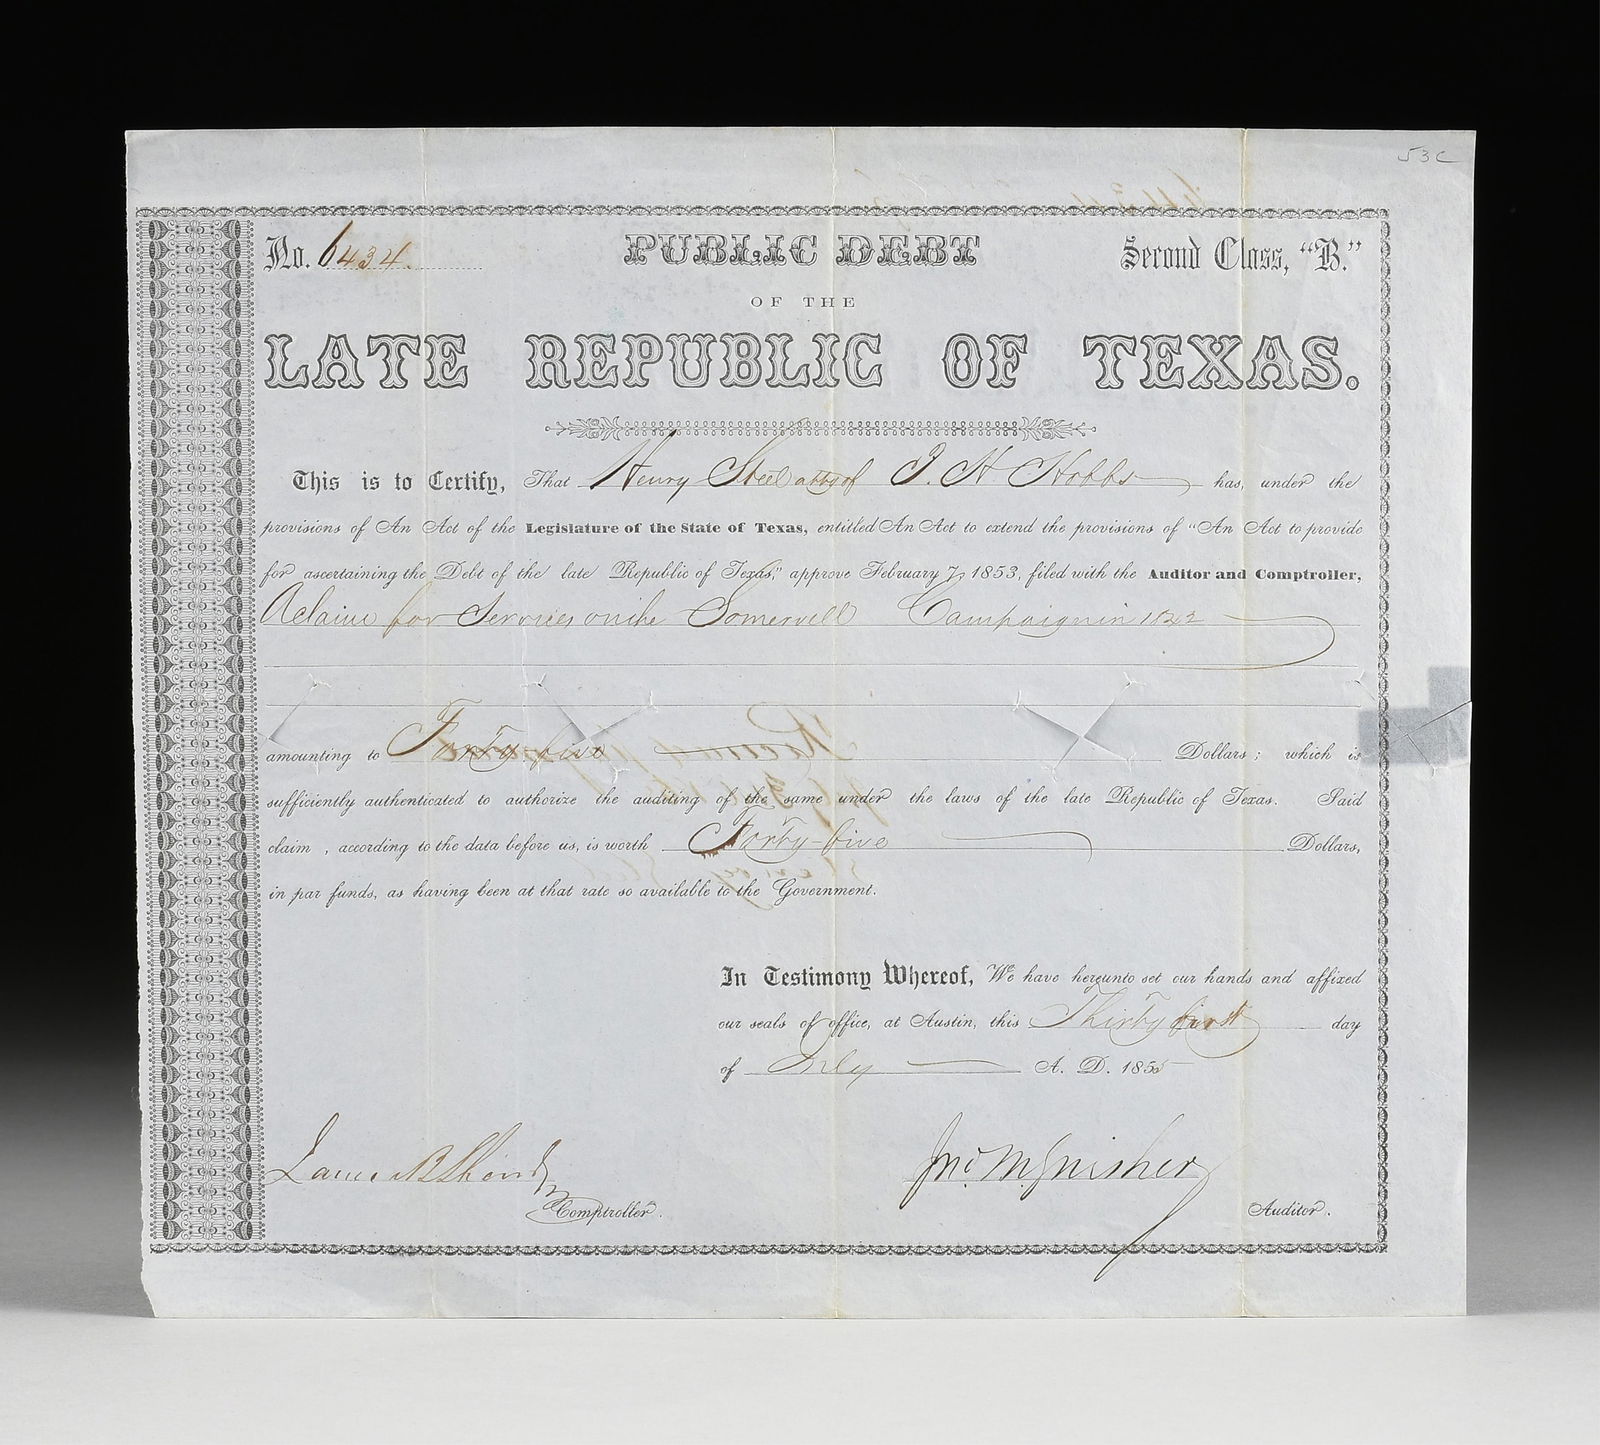 53C
No. 6434. PUBLIC DEBT Second Class, "B."
OF THE
LATE REPUBLIC OF TEXAS.
This is to Certify, That Henry Steel atty of J. H. Hobbs has, under the
provisions of An Act of the Legislature of the State of Texas, entitled An Act to extend the provisions of "An Act to provide
for ascertaining the Debt of the late Republic of Texas," approve February 7, 1853, filed with the Auditor and Comptroller,
A claim for Services on the Somervell Campaign in 1842
amounting to Forty five Dollars; which is
sufficiently authenticated to authorize the auditing of the same under the laws of the late Republic of Texas. Said
claim, according to the data before us, is worth Forty-five Dollars,
in par funds, as having been at that rate so available to the Government.
In Testimony Whereof, We have hereunto set our hands and affixed
our seals of office, at Austin, this Thirty first day
of July A. D. 1855
James B Shaw Jno. M. Swisher
Comptroller. Auditor.